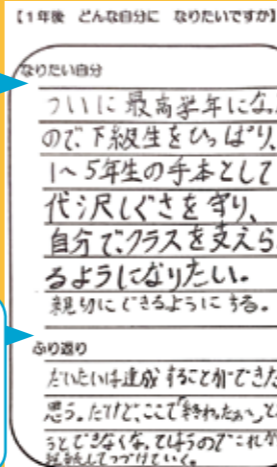 【1年後 どんな自分に なりたいですか】
なりたい自分
ついに最高学年にな
ので、下級生をひっぱり、
1〜5年生の手本として
代沢しぐさを守り、
自分で、クラスを支えら
るようになりたい。
親切にできるようにする。
ふり返り
だいたいは達成することができた
思う。だけど、ここで「終わったぁ〜」と
うとできなくな、てしまうので、これか
つづけていく。